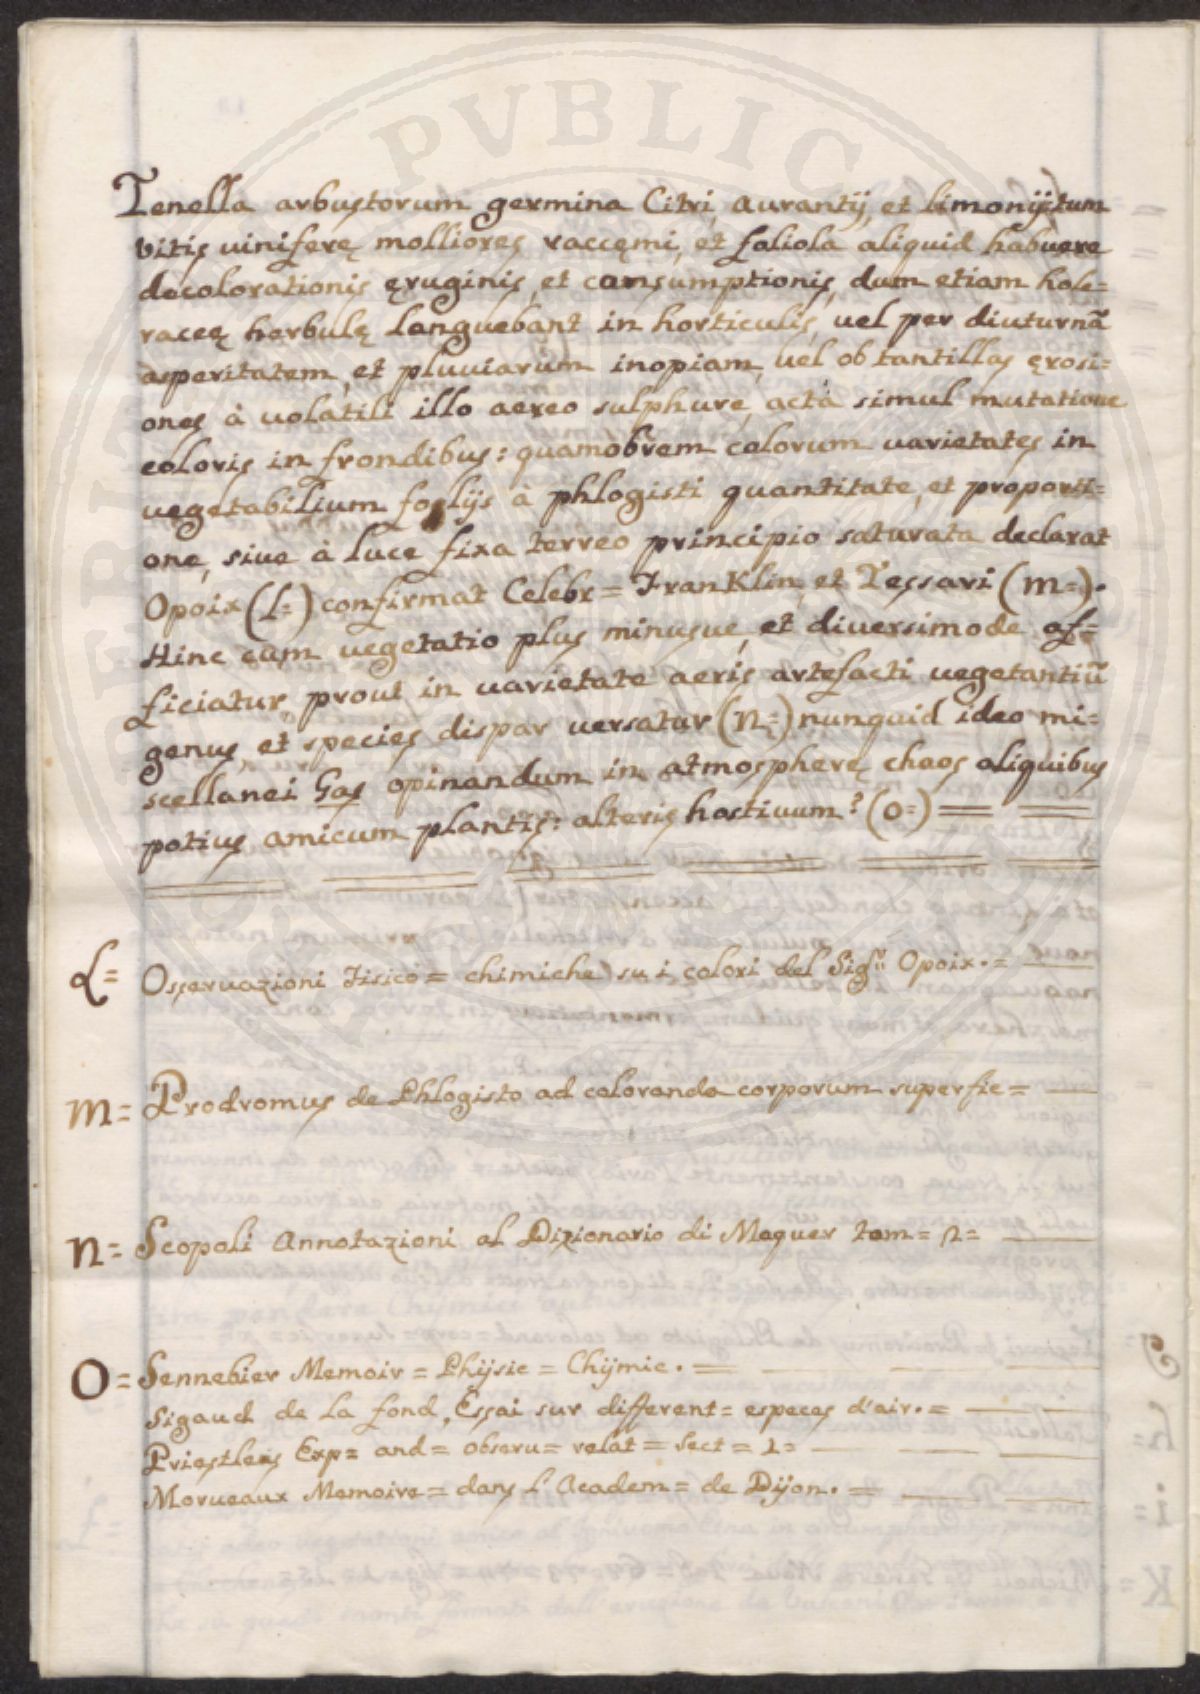 Tenella arbustorum germina Citri, aurantij, et limonij, tum
vitis uiniferę molliores raccęmi, et foliola aliquid habuere
decolorationis ęruginis, et consumptionis, dum etiam hole=
raceę herbulę languebant in horticulis, uel per diuturnã
asperitatem, et pluuiarum inopiam, uel ob tantillas ęrosi=
ones à uolatili illo aereo sulphure, acta simul mutatione
coloris in frondibus: quamobrem colorum uarietates in
uegetabilium folijs à phlogisti quantitate, et proporti=
one, siue à luce fixa terreo principio saturata declarat
Opoix (L=) confirmat Celebr= Franklin, et Tessari (m=).
Hinc cum uegetatio plus minusue, et diuersimode af=
ficiatur prout in uarietate aeris artefacti uegetantiũ
genus, et species dispar uersatur (n=) nunquid ideo mi=
scellanei Gas opinandum in atmospherę chaos aliquibus
potius amicum plantis: alteris hostiuum? (o=)
L= Osseruazioni Fisico= chimiche su i colori del Sig.r Opoix.=
m= Prodromus de Phlogisto ad colorando corporum superfic=
n= Scopoli Annotazioni al Dizionario di Maquer tom= 2=
O= Sennebier Memoir= Phÿsic= Chÿmic.=
Sigaud de La fond, Essai sur different= especes d'air.=
Priestleijs Exp= and= obseru= relat= Sect= 1=
Morueaux Memoire= dans L'Academ= de Dijon.=
PVBLIC